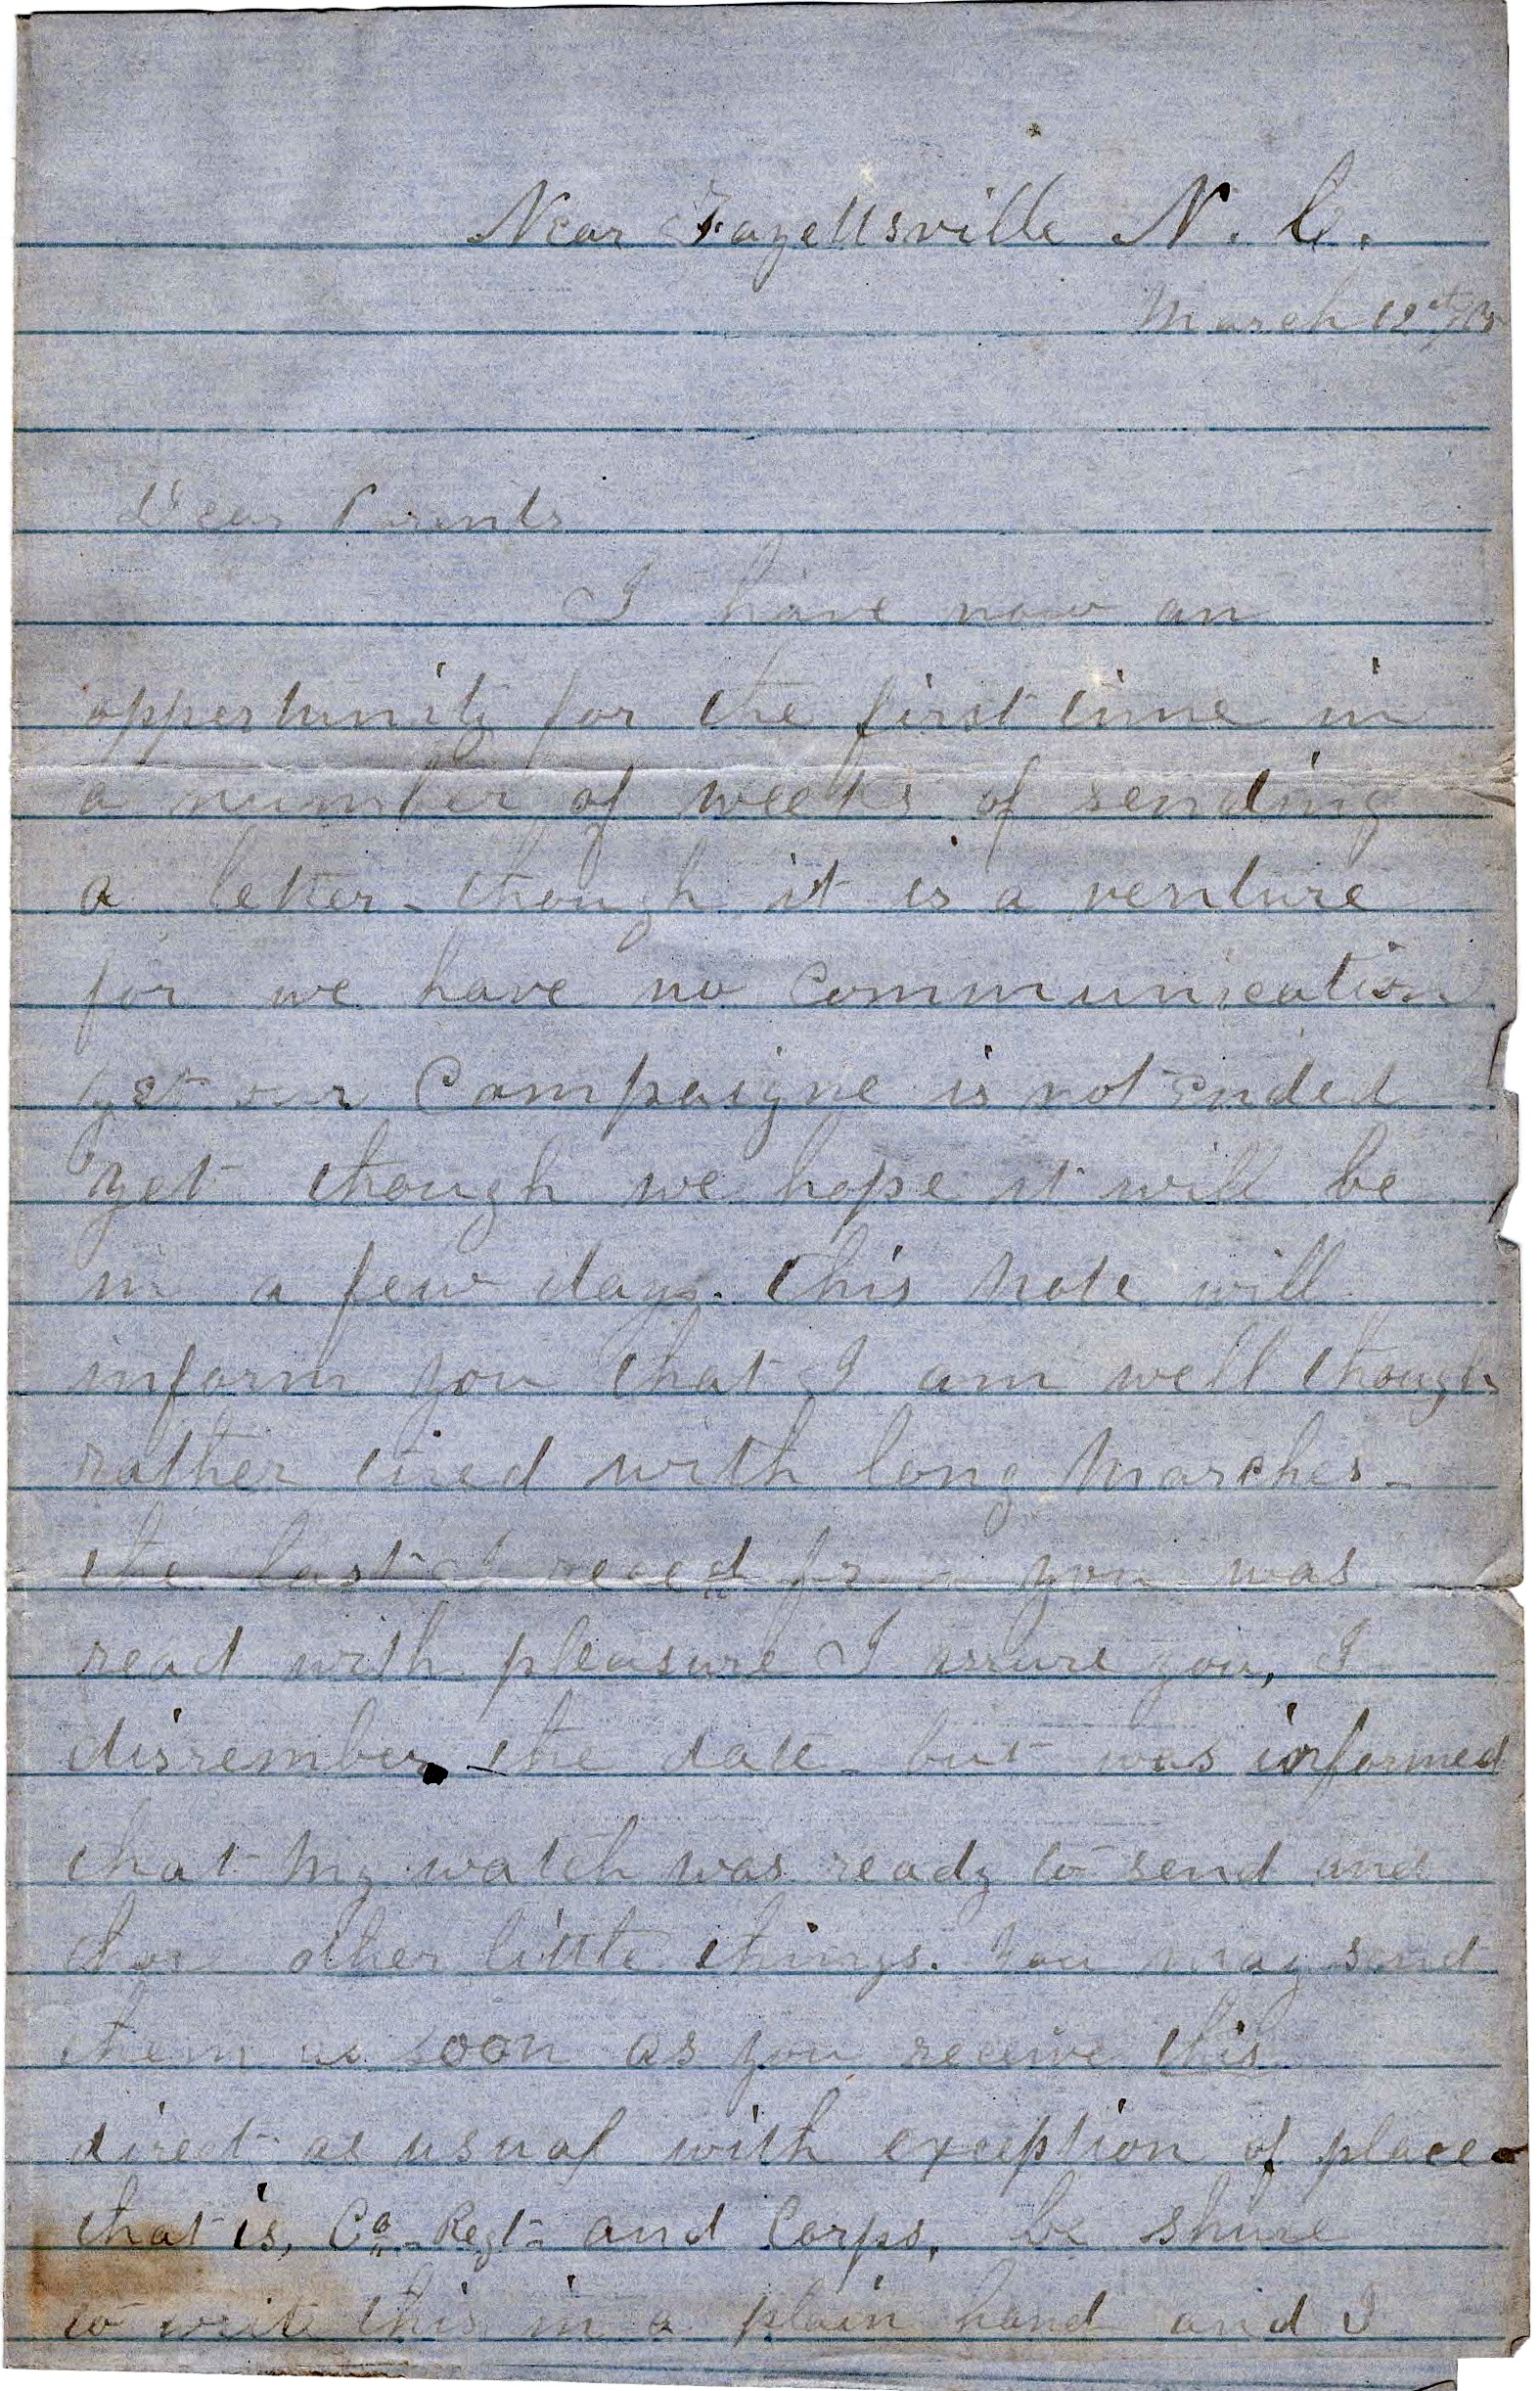 Near Fayettsville N. C.
March 12th/65
Dear Parents
I have now an
oppertunity for the first time in
a number of weeks of sending
a letter - though it is a venture
for we have no Communication
yet our Campaigne is not ended
yet though we hope it will be
in a few days. this Note will
inform you that I am well though
rather tired with long Marches -
the last I receed from you was
read with pleasure I assure you, I
disremember the date - but was informed
that My watch was ready to send and
those other little things. You may send
them as soon as you receive this
direct as usual with exception of place -
that is, Co - Regt - and Corps, be shure
to write this in a plain hand and I